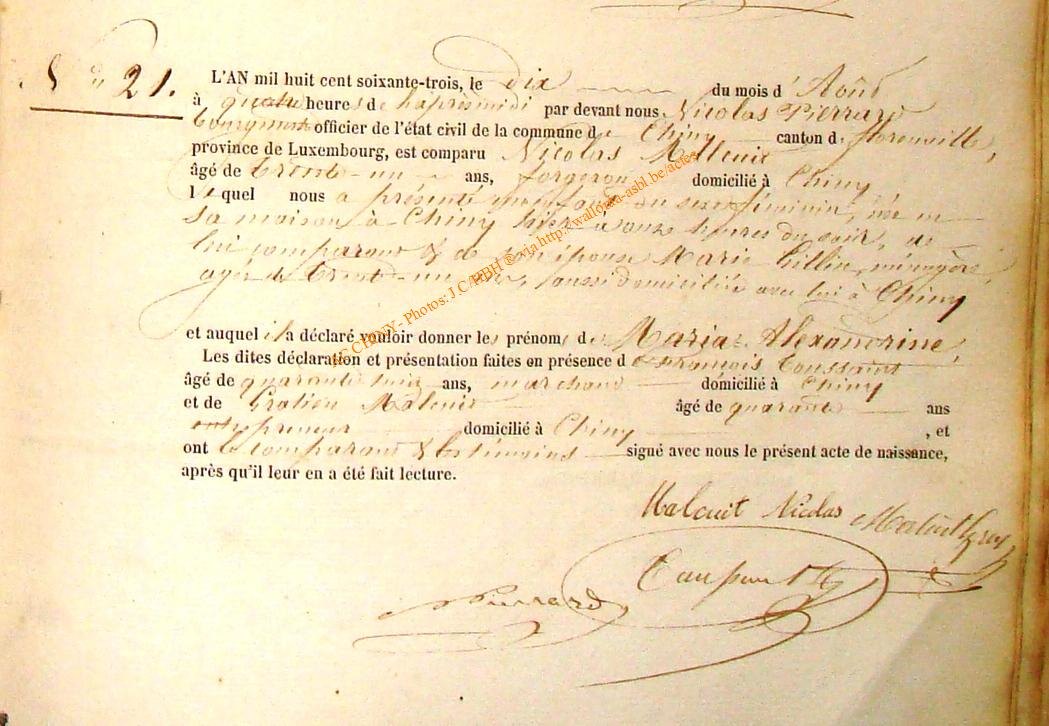 N° 21.
L'AN mil huit cent soixante-trois, le dix du mois d'Août
à quatre heures de l'après midi par devant nous Nicolas Pierrard
bourgmestre officier de l'état civil de la commune de Chiny canton de florenville,
province de Luxembourg, est comparu Nicolas Malcuit
âgé de trente-un ans, forgeron domicilié à Chiny
lequel nous a présenté un enfant du sexe féminin, née en
sa maison à Chiny hier à onze heures du soir, de
lui comparant & de son épouse Marie Gillin, ménagère,
agée de trente-un ans, aussi domiciliée avec lui à Chiny
et auquel il a déclaré vouloir donner les prénoms de Maria-Alexandrine,
Les dites déclaration et présentation faites en présence de françois Toussaint
âgé de quarante huit ans, marchand domicilié à Chiny
et de Gratien Malcuit âgé de quarante ans
entrepreneur domicilié à Chiny, et
ont le comparant & les témoins signé avec nous le présent acte de naissance,
après qu'il leur en a été fait lecture.
Malcuit Nicolas Malcuit
Pierrard
EC CHINY - Photos: J.C.HBH ® via http://wallonia-asbl.be/actes